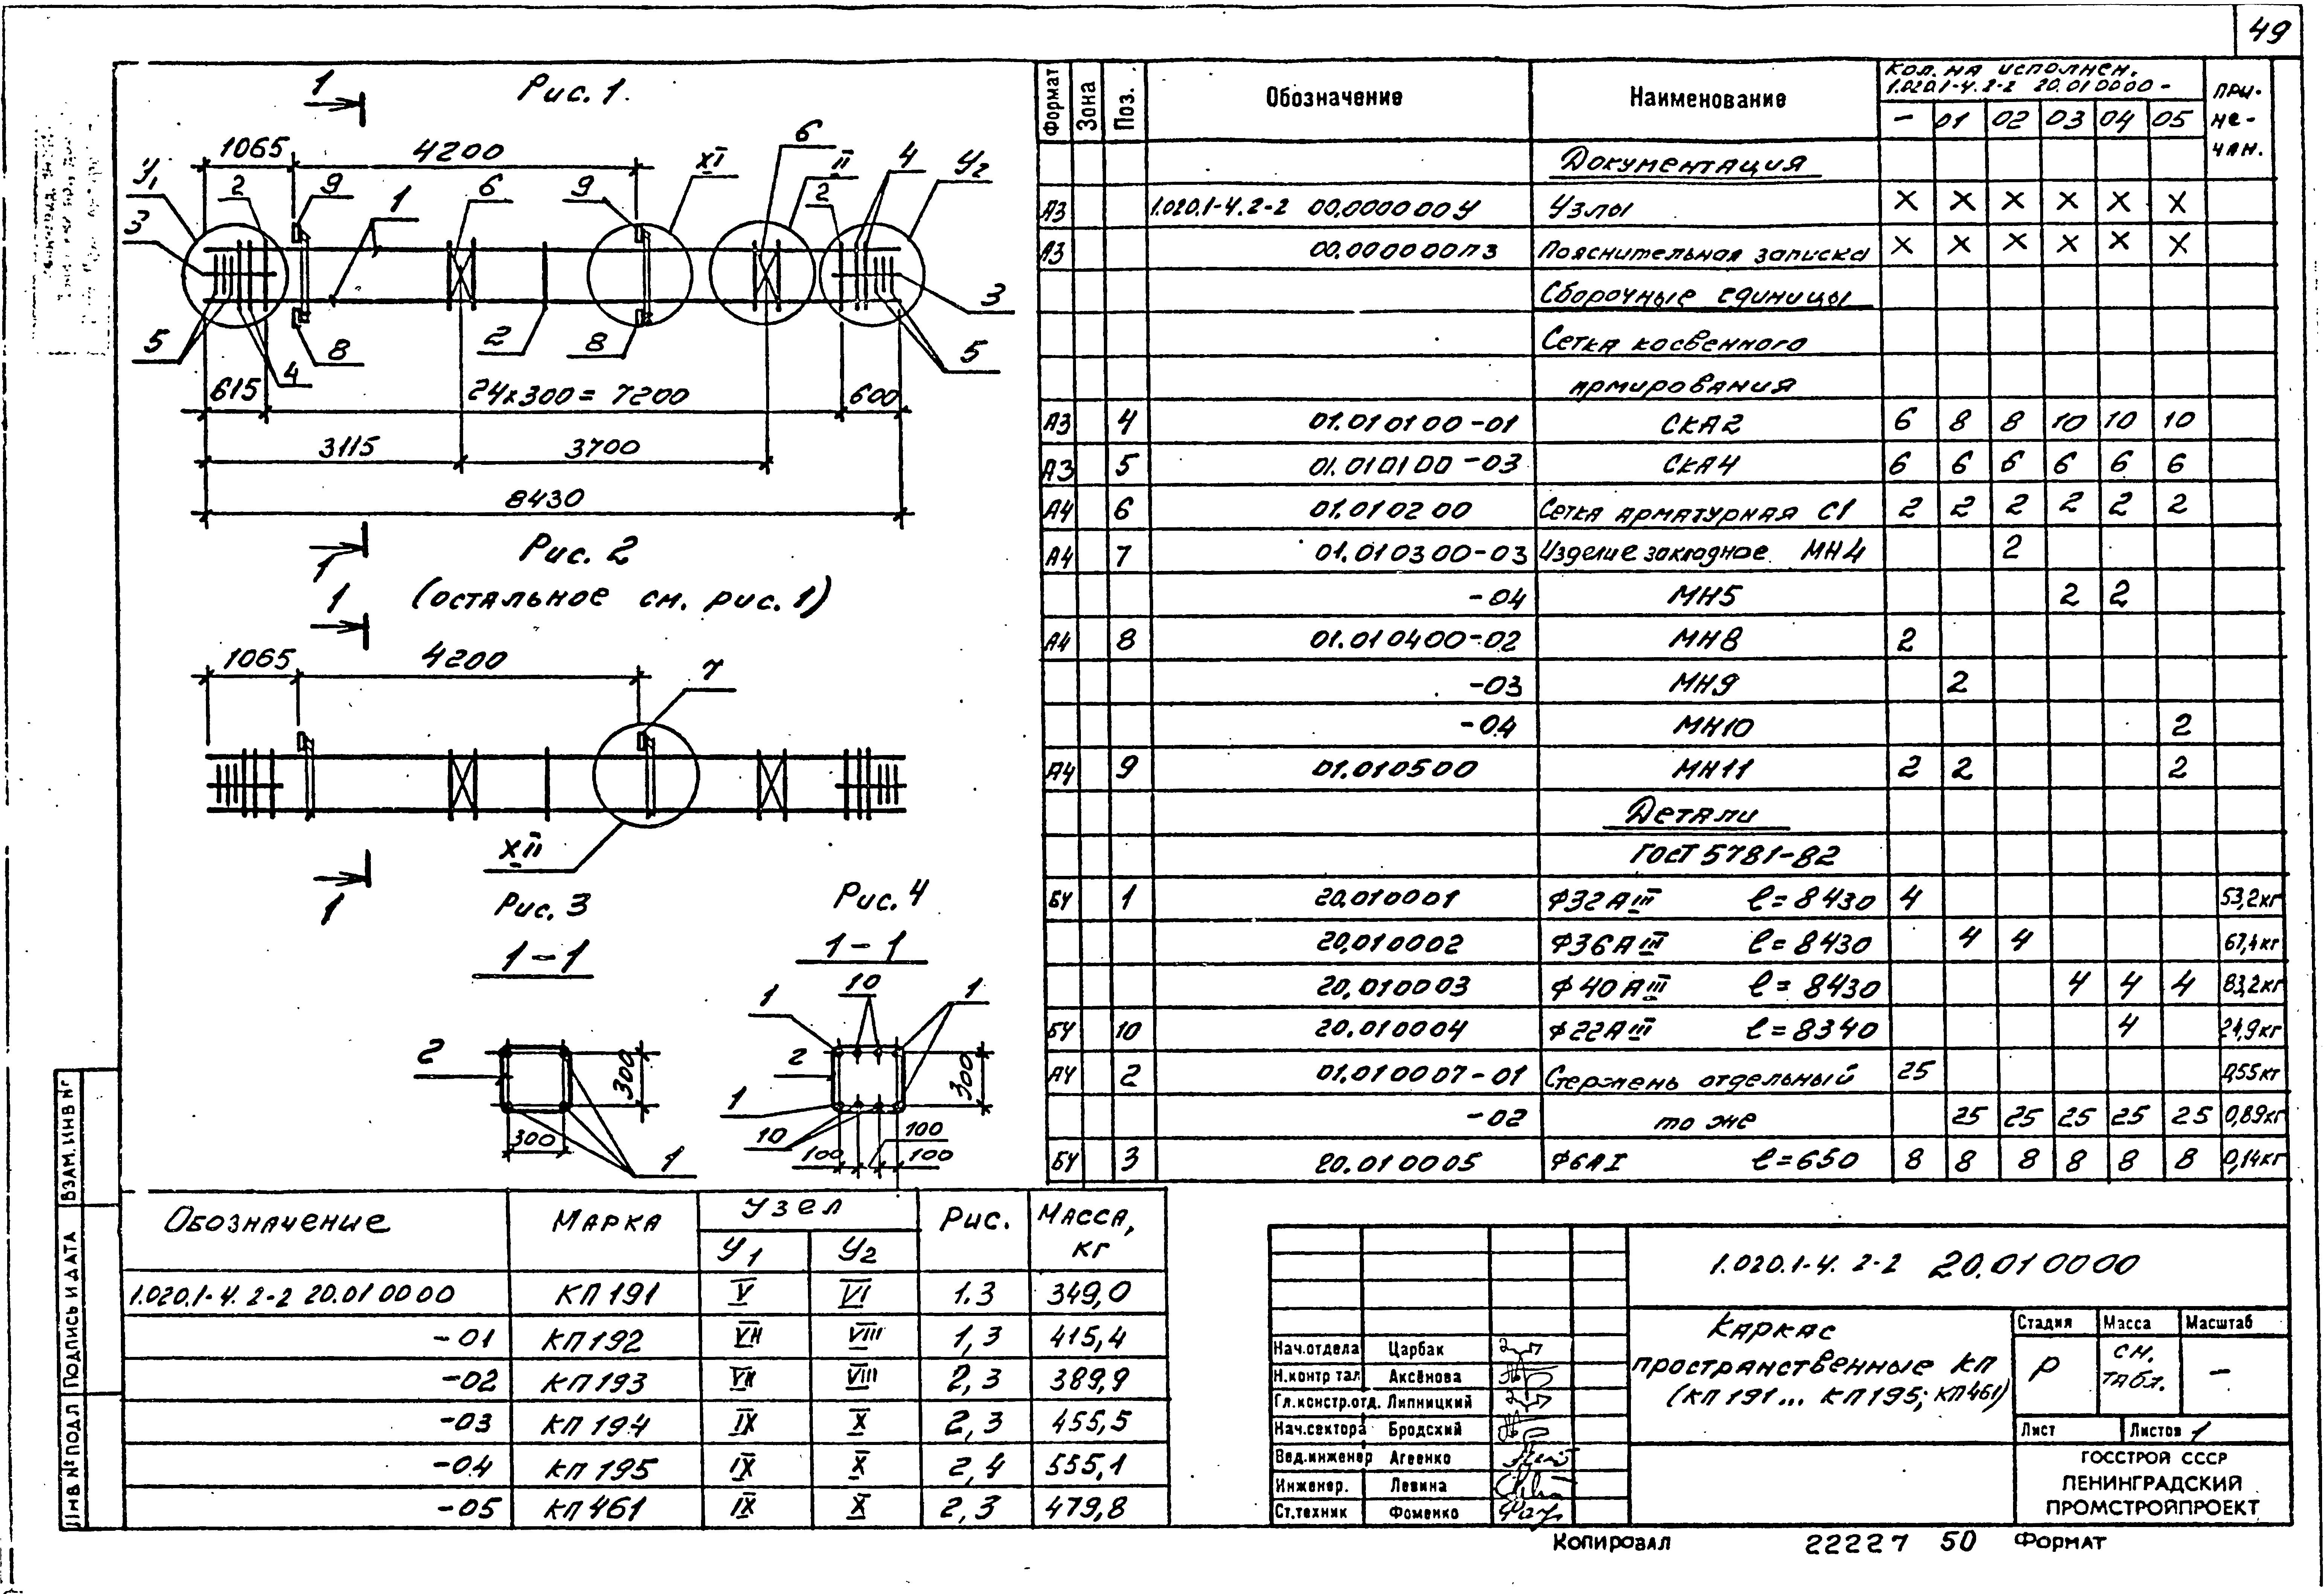 49
Рис. 1.
1
1065
4200
У1
2
9
1
6
9
XI
6
II
2
4
У2
3
3
5
4
8
2
8
5
615
24х300 = 7200
600
3115
3700
8430
1
Рис. 2
(остальное см. рис. 1)
1
1065
4200
7
XII
1
Рис. 3
1-1
2
300
300
1
Рис. 4
1-1
1
10
1
2
300
1
10
100
100
100
Формат
Зона
Поз.
Обозначение
Наименование
Кол. на исполнен.
1.020.1-4.2-2 20.010000-
При-
ме-
чан.
- 01 02 03 04 05
Документация
А3 1.020.1-4.2-2 00.000000У Узлы X X X X X X
А3 00.000000ПЗ Пояснительная записка X X X X X X
Сборочные единицы
Сетка косвенного
армирования
А3 4 01.010100-01 СКА2 6 8 8 10 10 10
А3 5 01.010100-03 СКА4 6 6 6 6 6 6
А4 6 01.010200 Сетка арматурная С1 2 2 2 2 2 2
А4 7 01.010300-03 Изделие закладное МН4 2
-04 МН5 2 2
А4 8 01.010400-02 МН8 2
-03 МН9 2
-04 МН10 2
А4 9 01.010500 МН11 2 2 2
Детали
ГОСТ 5781-82
БЧ 1 20.010001 Ф32АIII ℓ=8430 4 53,2кг
20.010002 Ф36АIII ℓ=8430 4 4 67,4кг
20.010003 Ф40АIII ℓ=8430 4 4 4 83,2кг
БЧ 10 20.010004 Ф22АIII ℓ=8340 4 24,9кг
А4 2 01.010007-01 Стержень отдельный 25 0,55кг
-02 то же 25 25 25 25 25 0,89кг
БЧ 3 20.010005 Ф6АI ℓ=650 8 8 8 8 8 8 0,14кг
Обозначение Марка Узел Рис. Масса, кг
У1 У2
1.020.1-4.2-2 20.010000 КП191 V VI 1.3 349,0
-01 КП192 VII VIII 1,3 415,4
-02 КП193 VII VIII 2,3 389,9
-03 КП194 IX X 2,3 455,5
-04 КП195 IX X 2,4 555,1
-05 КП461 IX X 2,3 479,8
ИНВ № ПОДЛ ПОДПИСЬ И ДАТА ВЗАМ. ИНВ №
1.020.1-4. 2-2 20.010000
Нач.отдела Царбак
Н.контр тал Аксёнова
Гл.констр.отд. Липницкий
Нач.сектора Бродский
Вед.инженер Агеенко
Инженер. Левина
Ст.техник Фоменко
Каркас
пространственные КП
(КП191... КП195; КП461)
Стадия Масса Масштаб
Р см. табл. -
Лист Листов 1
ГОССТРОЙ СССР
ЛЕНИНГРАДСКИЙ
ПРОМСТРОЙПРОЕКТ
Копировал 22227 50 Формат